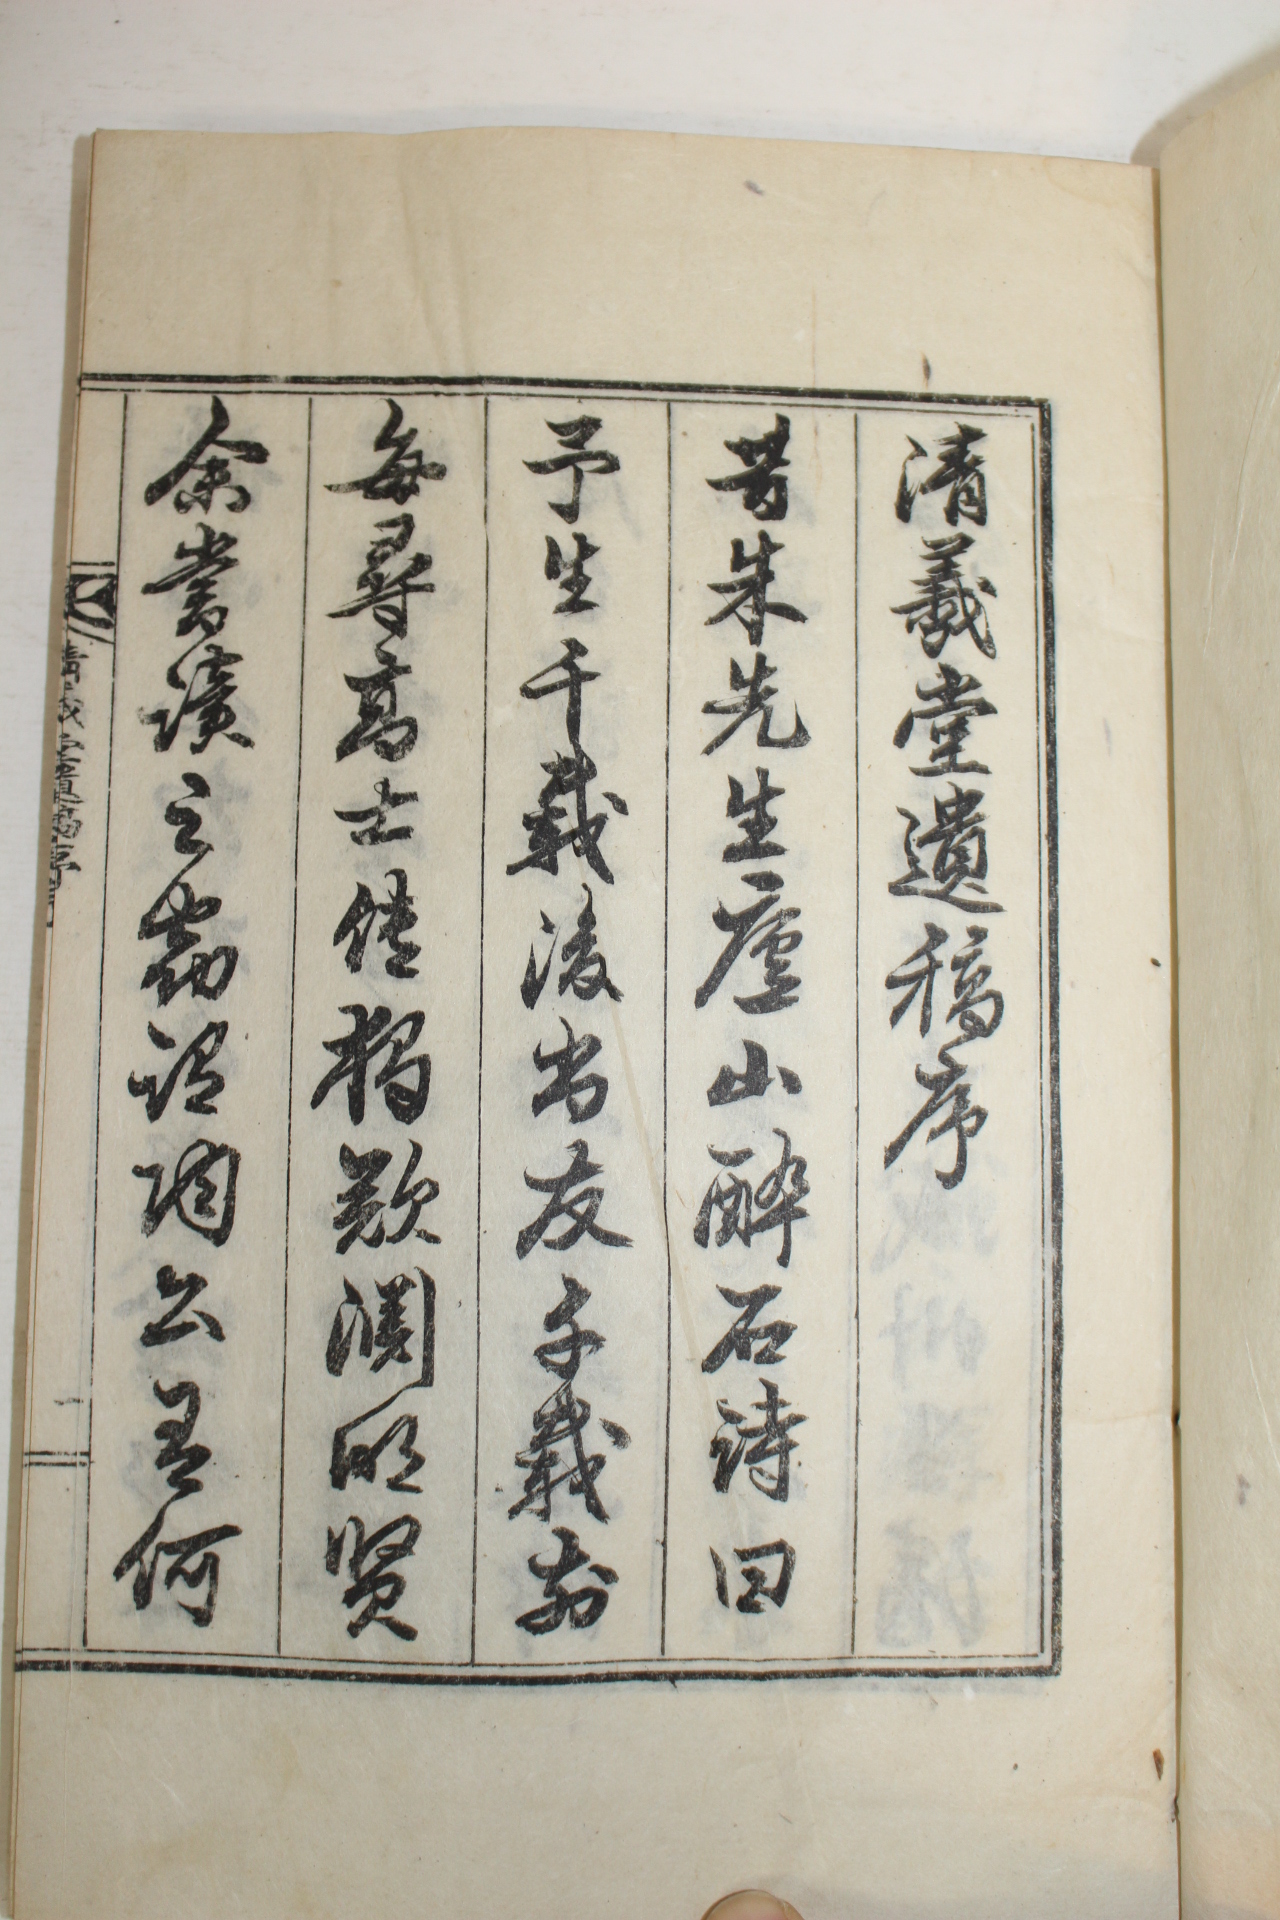 清義堂遺稿序
昔朱先生廬山醉石詩曰
予生千載後尚友千載前
每尋高士傳獨歎淵明賢
余嘗讀之竊謂陶公何
清義堂遺稿序
一